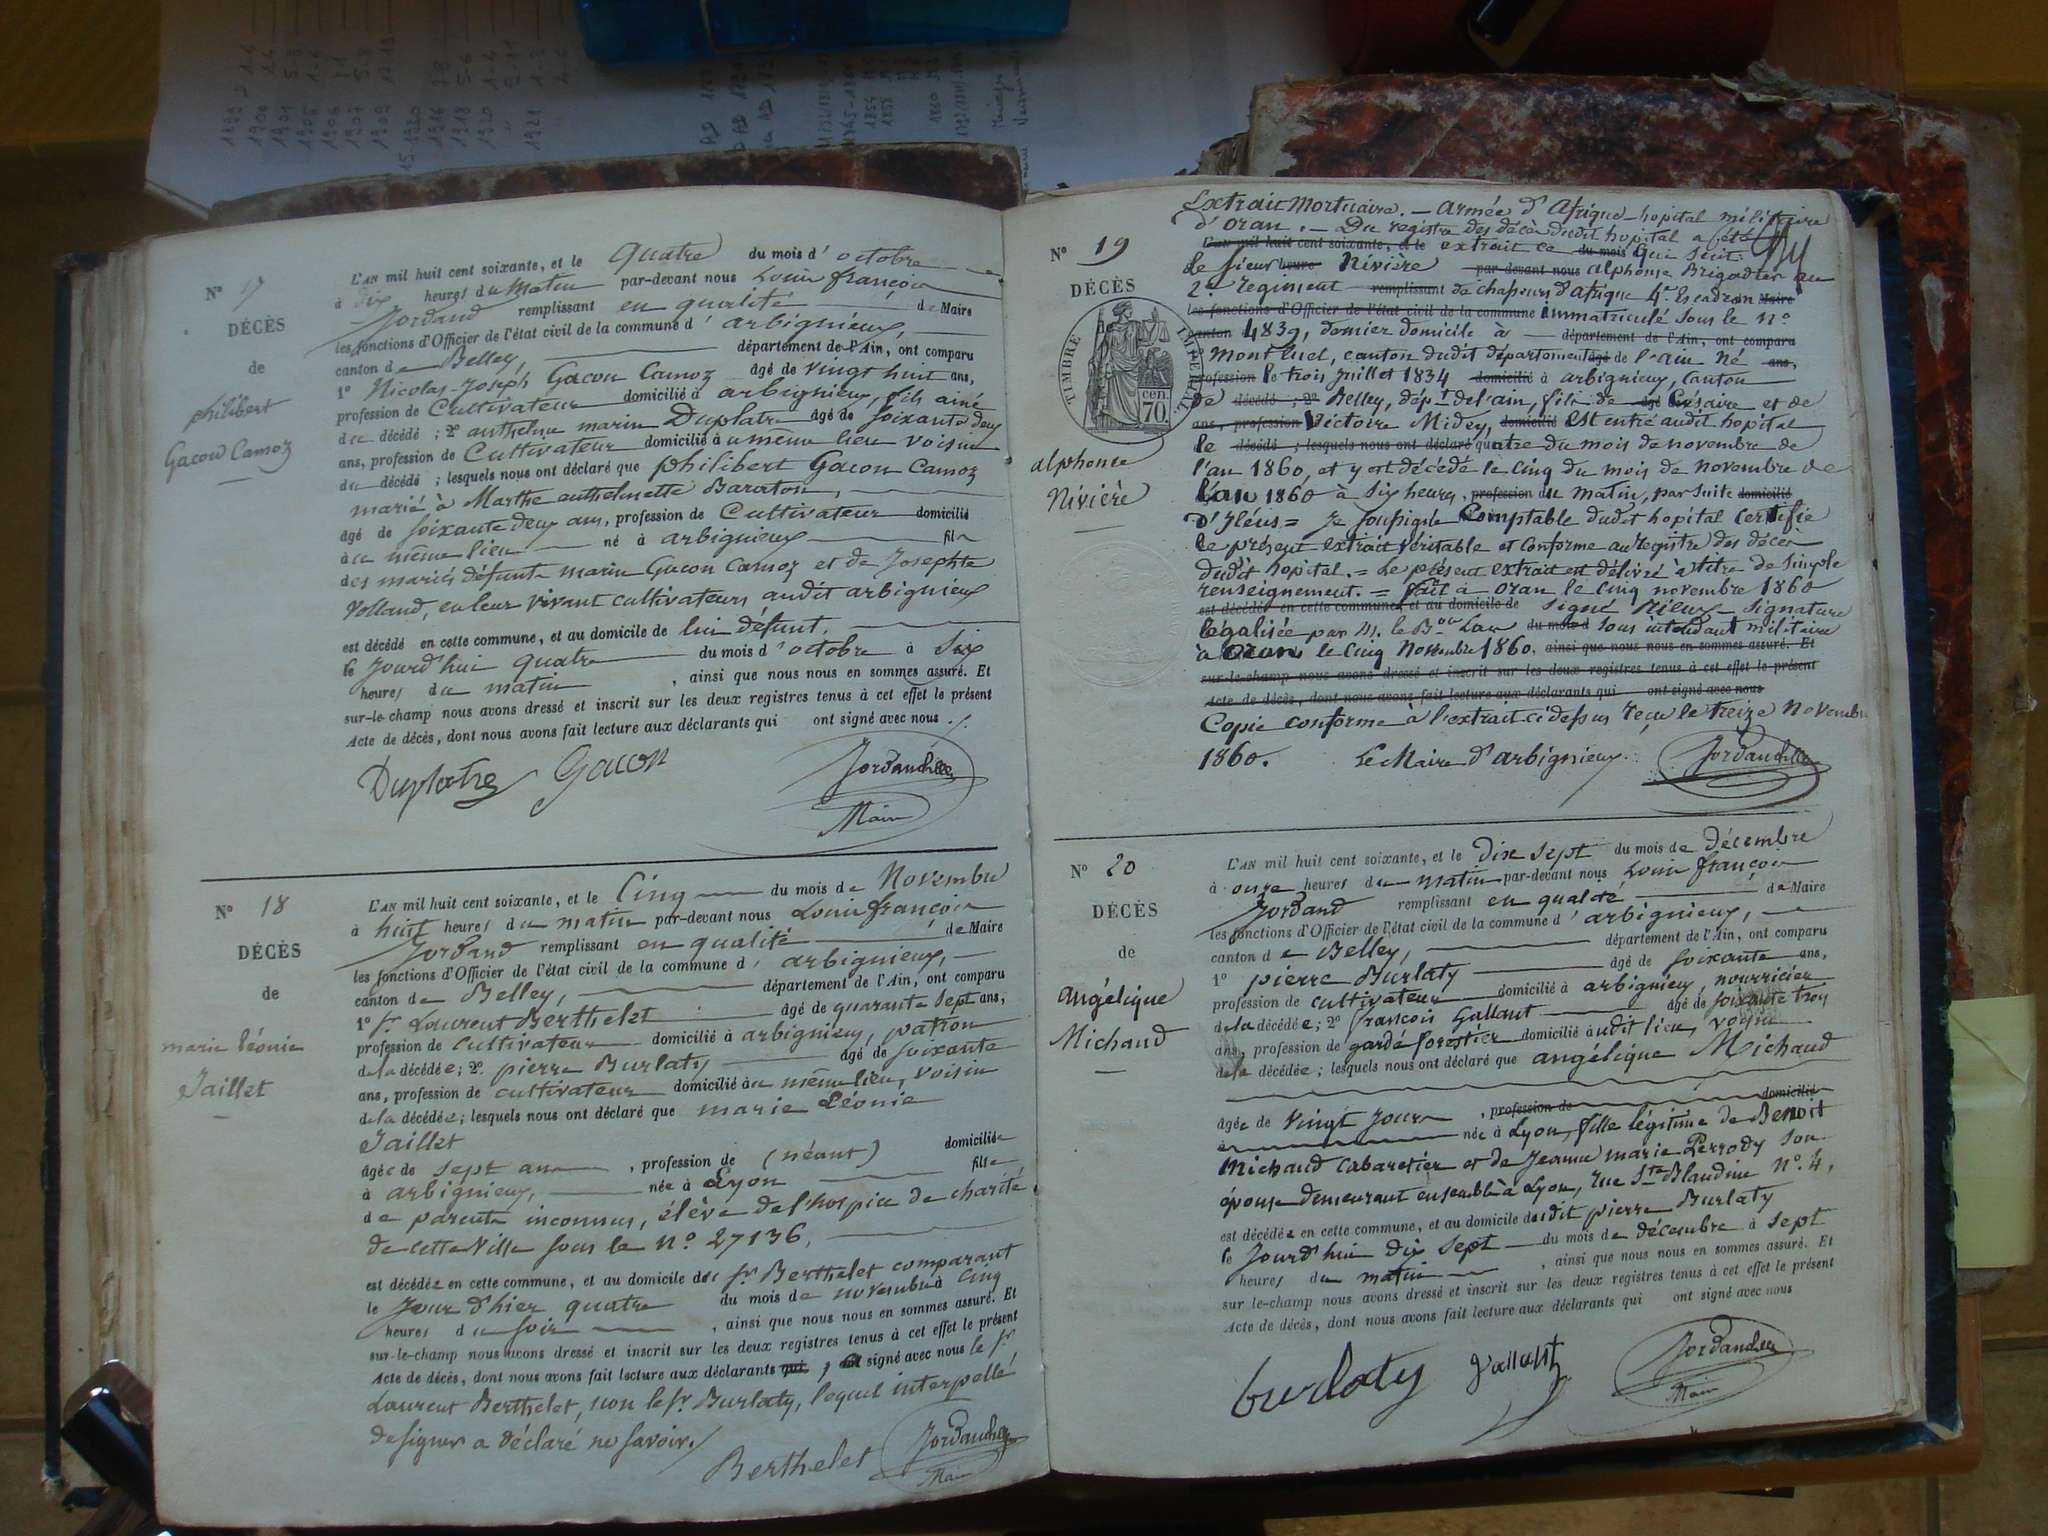 N° 17
DÉCÈS
de
philibert
Gacon Camoz
L'AN mil huit cent soixante, et le quatre du mois d'octobre
à dix heures du matin par-devant nous Louis françois
Jordand remplissant en qualité de Maire
les fonctions d'Officier de l'état civil de la commune d'arbignieux,
canton de Belley, département de l'Ain, ont comparu
1° Nicolas Joseph Gacon Camoz âgé de vingt huit ans,
profession de Cultivateur domicilié à arbignieux, fils ainé
du décédé ; 2° anthelme marin Duplatre âgé de soixante deux
ans, profession de Cultivateur domicilié à u même lieu voisin
du décédé ; lesquels nous ont déclaré que philibert Gacon Camoz
marié à Marthe anthelmette Baraton,
âgé de soixante deux ans, profession de Cultivateur domicilié
à u même lieu né à arbignieux fils
des mariés défunts marin Gacon Camoz et de Josephte
Volland, en leur vivant cultivateurs audit arbignieux
est décédé en cette commune, et au domicile de lui défunt,
le Jourd'hui quatre du mois d'octobre à Six
heures du matin , ainsi que nous nous en sommes assuré. Et
sur-le-champ nous avons dressé et inscrit sur les deux registres tenus à cet effet le présent
Acte de décès, dont nous avons fait lecture aux déclarants qui ont signé avec nous ./.
Duplatre Gacon
Maire
N° 18
DÉCÈS
de
marie léonie
Jaillet
L'AN mil huit cent soixante, et le Cinq du mois de Novembre
à huit heures du matin par-devant nous Louis françois
Jordand remplissant en qualité de Maire
les fonctions d'Officier de l'état civil de la commune d'arbignieux,
canton de Belley, département de l'Ain, ont comparu
1° Sr Laurent Berthelet âgé de quarante sept ans,
profession de cultivateur domicilié à arbignieux, patron
de la décédée; 2° pierre Burlaty âgé de soixante
ans, profession de cultivateur domicilié à u même lieu, voisin
de la décédée; lesquels nous ont déclaré que marie Léonie
Jaillet
âgée de sept ans , profession de (néant) domiciliée
à arbignieux, née à Lyon fille
de parents inconnus, élève de l'hospice de charité
de cette ville sous le N° 27136,
est décédée en cette commune, et au domicile du Sr Berthelet comparant
le Jour d'hier quatre du mois de novembre à Cinq
heures du soir , ainsi que nous nous en sommes assuré. Et
sur-le-champ nous avons dressé et inscrit sur les deux registres tenus à cet effet le présent
Acte de décès, dont nous avons fait lecture aux déclarants qui , signé avec nous le Sr
Laurent Berthelet, non le Sr Burlaty, lequel interpellé
de signer a déclaré ne savoir./
Berthelet
Maire
N° 19
DÉCÈS
TIMBRE IMPÉRIAL
70 cen.
alphonse
Nivière
Extrait Mortuaire. — Armée d'Afrique — hopital militaire
d'Oran. — Du registre des décès dudit hopital a été
L'AN mil huit cent soixante, et le extrait ce du mois qui suit:
Le Sieur heure Nivière par-devant nous alphonse Brigadier au
2e régiment remplissant de chasseurs d'afrique 4e Escadron Maire
les fonctions d'Officier de l'état civil de la commune immatriculé sous le N°
canton 4839, dernier domicile à département de l'Ain, ont comparu
Montluel, canton dudit département âgé de l'ain Né ans,
profession le trois Juillet 1834 domicilié à arbignieux, Canton
de décédé ; 2° Belley, dépt de l'ain, fils de âgé Césaire et de
ans, profession Victoire Midey, domicilié Est entré audit hopital
le décédé ; lesquels nous ont déclaré quatre du mois de novembre de
l'an 1860, et y est décédé le cinq du mois de novembre de
l'an 1860 à Six heures, profession du matin, par suite domicilié
d'Iléus = Je soussigné Comptable dudit hopital certifie
le présent extrait véritable et conforme au registre des décès
dudit hopital. = Le présent extrait est délivré à titre de simple
renseignement. = fait à oran le cinq novembre 1860
est décédé en cette commune, et au domicile de signé Signature
légalisée par M. le Bon Law du mois d Sous intendant militaire
à Oran, le Cinq Novembre 1860. ainsi que nous nous en sommes assuré. Et
sur-le-champ nous avons dressé et inscrit sur les deux registres tenus à cet effet le présent
Acte de décès, dont nous avons fait lecture aux déclarants qui ont signé avec nous
Copie conforme à l'extrait ci dessus reçu le treize Novembre
1860. Le Maire d'arbignieux
N° 20
DÉCÈS
de
angélique
Michaud
L'AN mil huit cent soixante, et le dix sept du mois de décembre
à onze heures du matin par-devant nous Louis françois
Jordand remplissant en qualité de Maire
les fonctions d'Officier de l'état civil de la commune d'arbignieux,
canton de Belley, département de l'Ain, ont comparu
1° pierre Burlaty âgé de soixante ans,
profession de cultivateur domicilié à arbignieux, nourricier
de la décédée; 2° françois Gallant âgé de soixante trois
ans, profession de garde forestier domicilié audit lieu, voisin
de la décédée ; lesquels nous ont déclaré que angélique Michaud
âgée de vingt jours , profession de domiciliée
à née à Lyon, fille légitime de Benoit
Michaud cabaretier et de Jeanne marie Perrody son
épouse demeurant ensemble à Lyon, rue Ste Blandine N° 4,
est décédée en cette commune, et au domicile dudit pierre Burlaty
le Jourd'hui dix sept du mois de décembre à sept
heures du matin , ainsi que nous nous en sommes assuré. Et
sur le-champ nous avons dressé et inscrit sur les deux registres tenus à cet effet le présent
Acte de décès, dont nous avons fait lecture aux déclarants qui ont signé avec nous
burlaty
Maire